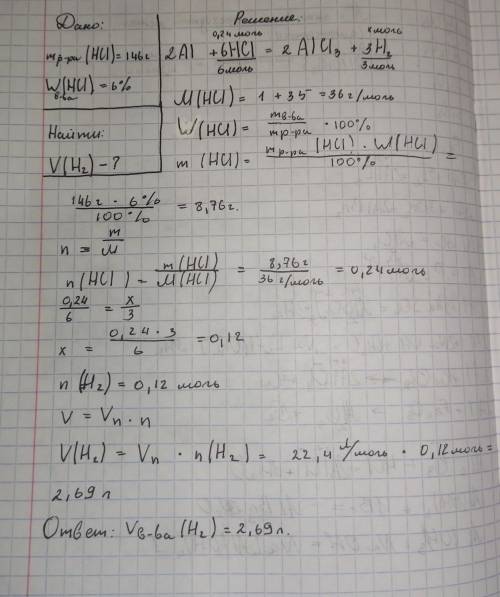 Дано:
m р-ра (HCl) = 146 г
W в-ва (HCl) = 6%
Найти:
V(H₂) - ?
Решение:
0,24 моль x моль
2Al + 6HCl = 2AlCl₃ + 3H₂
6 моль 3 моль
M(HCl) = 1 + 35 = 36 г/моль
W(HCl) = m в-ва / m р-ра · 100%
m (HCl) = m р-ра (HCl) · W(HCl) / 100% =
146 г · 6% / 100% = 8,76 г.
n = m / M
n(HCl) - m(HCl) / M(HCl) = 8,76 г / 36 г/моль = 0,24 моль
0,24 / 6 = x / 3
x = 0,24 · 3 / 6 = 0,12
n (H₂) = 0,12 моль
V = Vn · n
V(H₂) = Vn · n(H₂) = 22,4 л/моль · 0,12 моль =
2,69 л
Ответ: V в-ва (H₂) = 2,69 л.